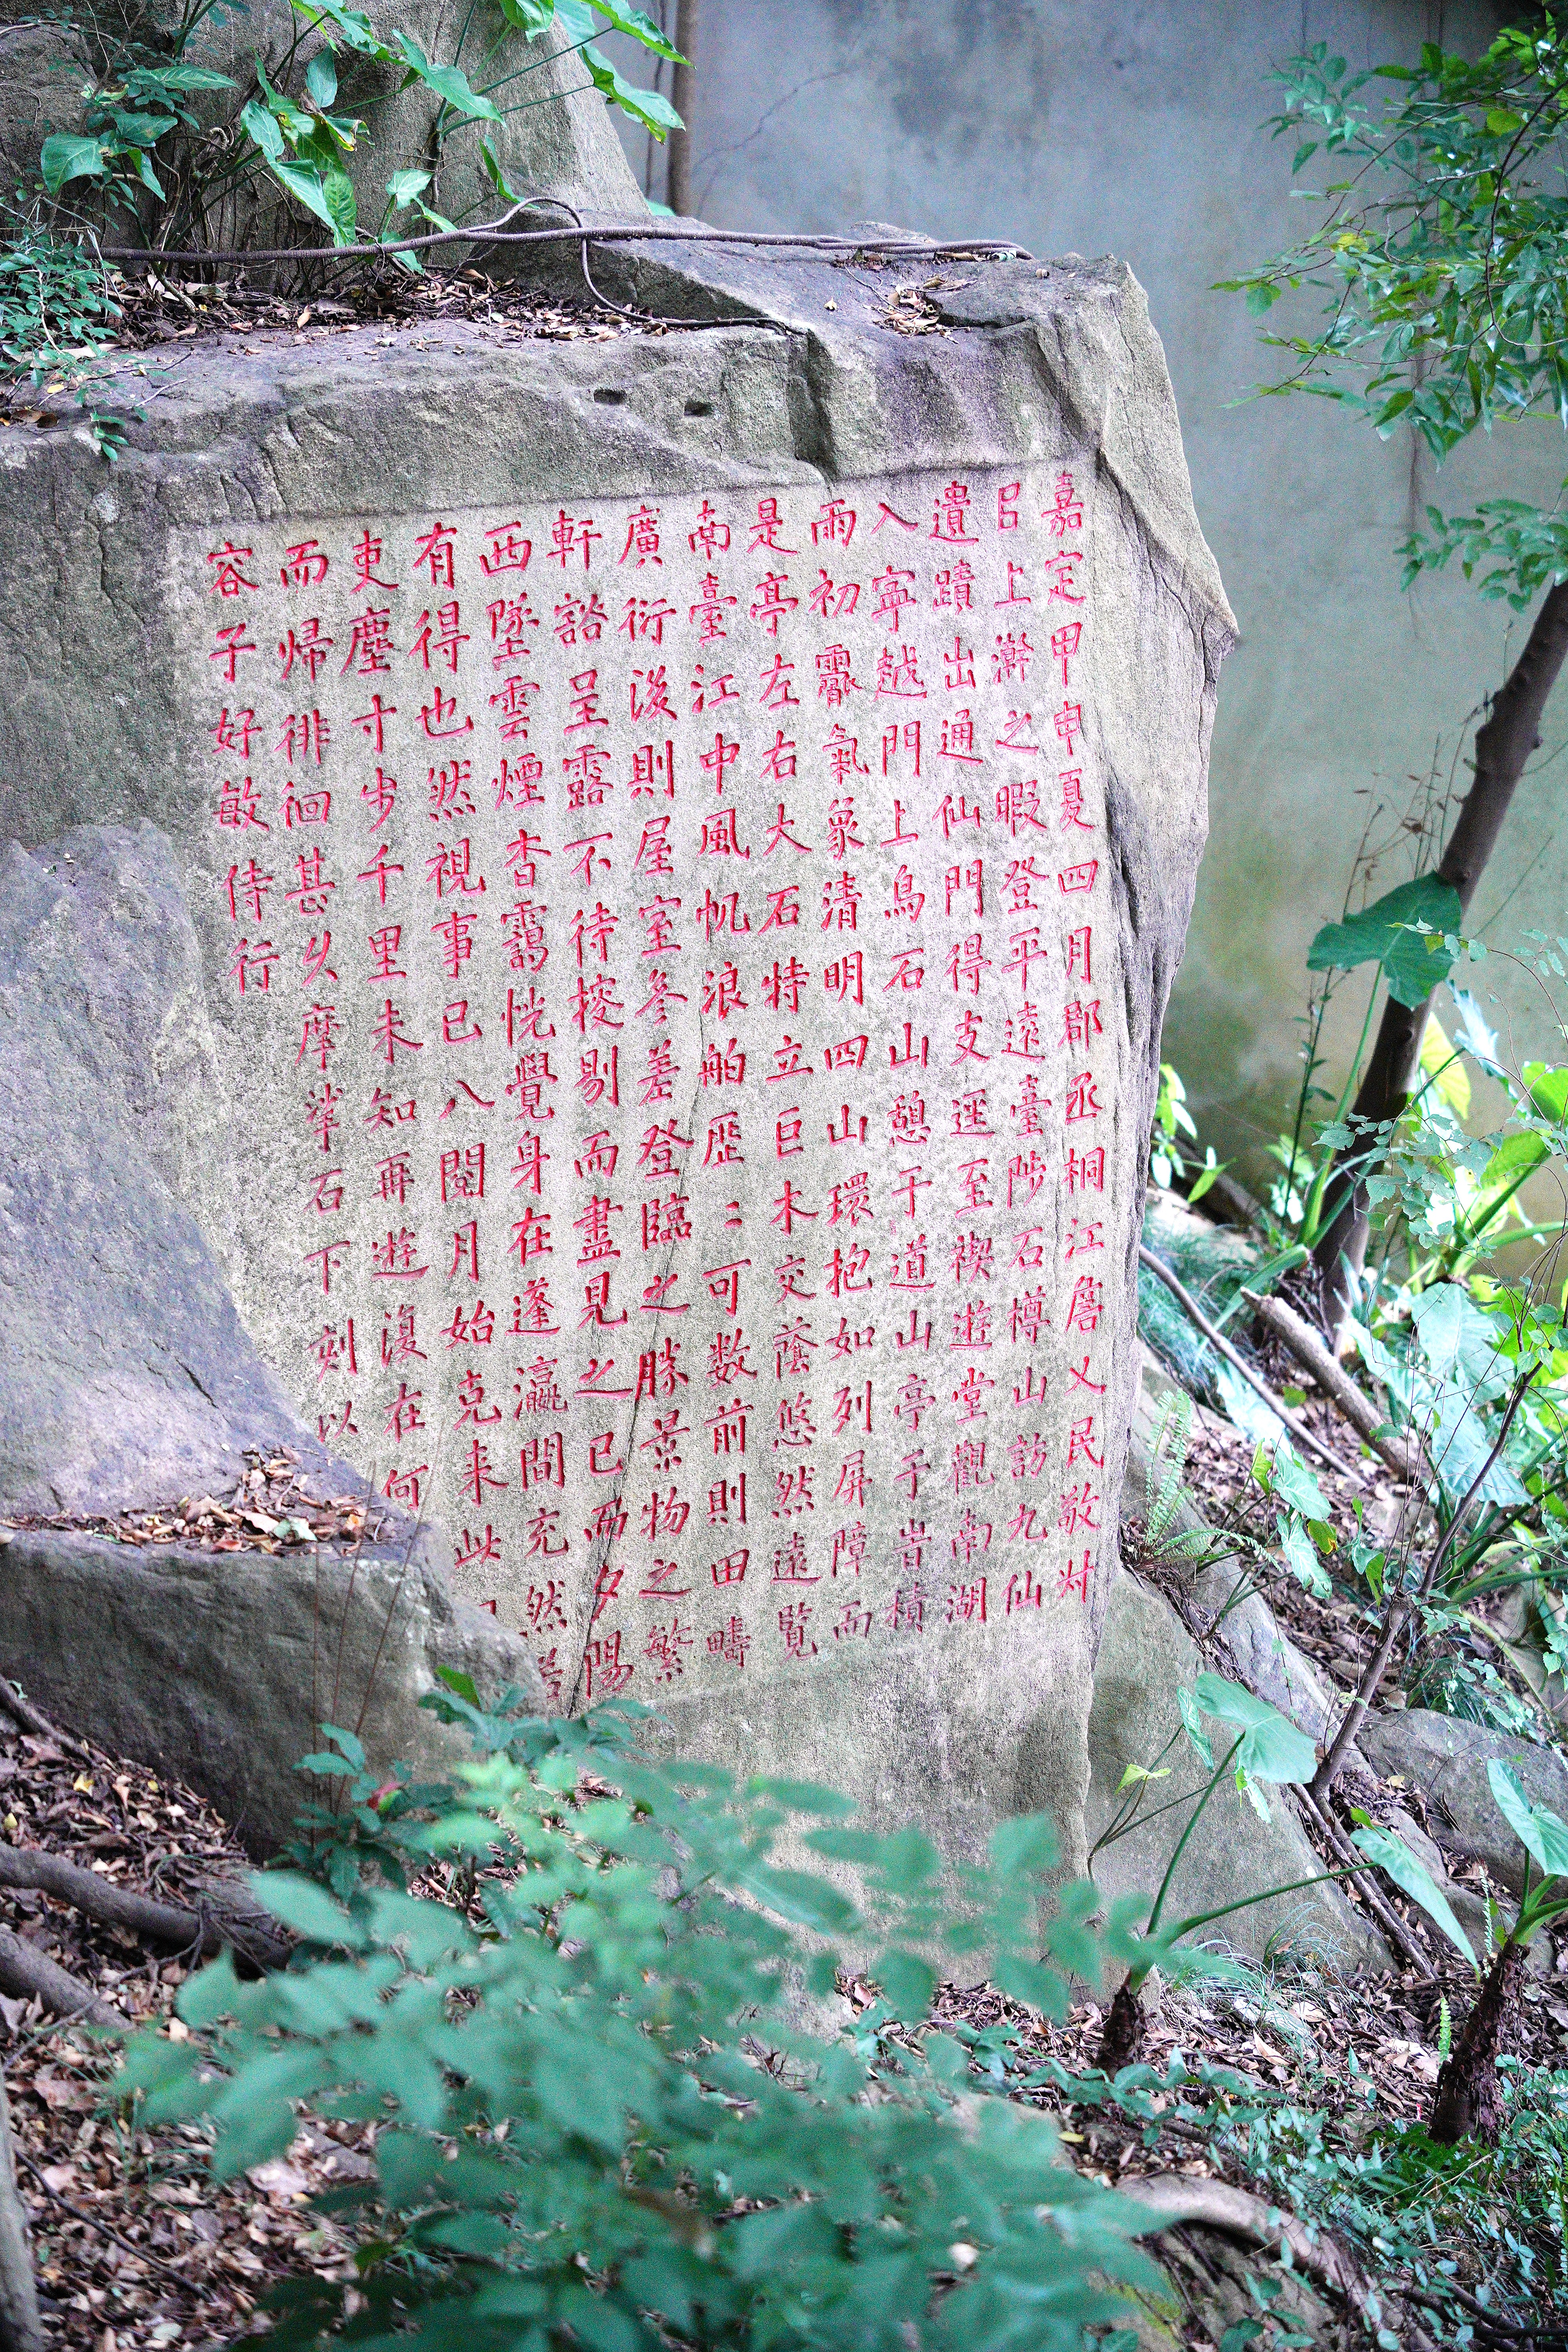 嘉定甲申夏四月郡丞桐江詹乂民敬叔
㠯上澣之暇登平遠臺陟石樽山訪九仙
遺蹟出通仙門得支逕至禊遊堂觀南湖
入寧越門上烏石山憩于道山亭于旹積
雨初霽氣象清明四山環抱如列屏障而
是亭左右大石特立巨木交蔭悠然遠覧
南臺江中風帆浪舶歷〻可数前則田疇
廣衍後則屋室參差登臨之勝景物之繁
軒豁呈露不待梭剔而盡見之已而夕陽
西墜雲煙杳靄恍覺身在蓬瀛間充然若
有得也然視事已八閱月始克来此
吏塵寸步千里未知再遊復在何
而歸徘徊甚久摩挲石下刻以
容子好敏侍行